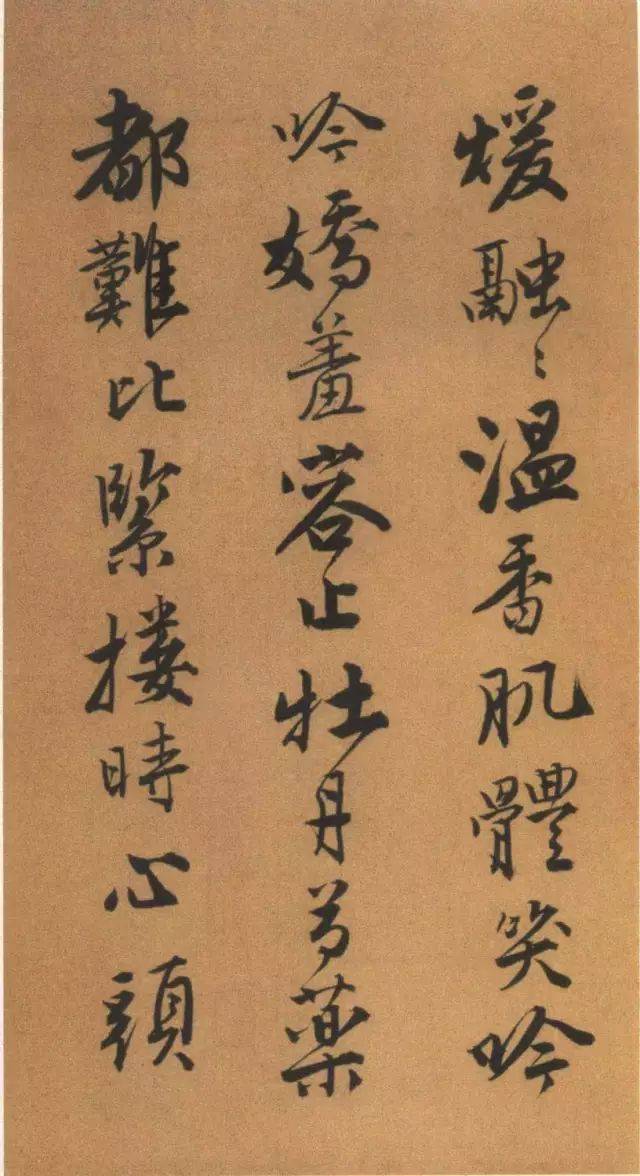 煖融〻温香肌體笑吟
吟嬌羞容止牡丹芍藥
都難比緊摟時心頭